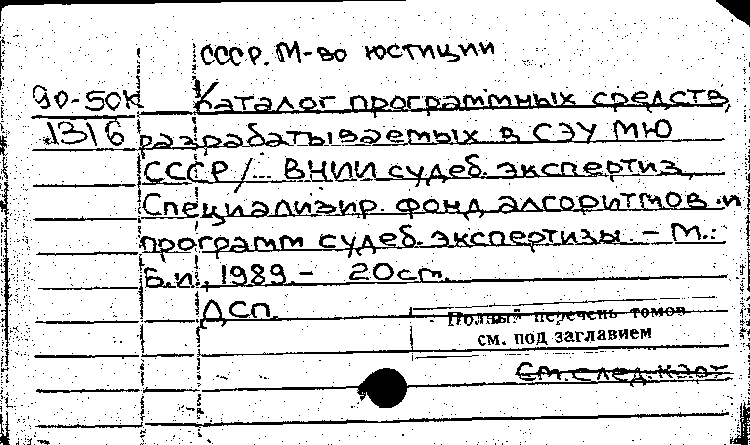 СССР. М-во юстиции
90-50К Каталог программных средств,
1316 разрабатываемых в СЭУ МЮ
СССР/... ВНИИ судеб. экспертиз,
Специализир. фонд алгоритмов и
программ судеб. экспертизы. - М.:
Б.и., 1989. - 20 см.
ДСП.
Полный перечень томов
см. под заглавием
См. след. карт